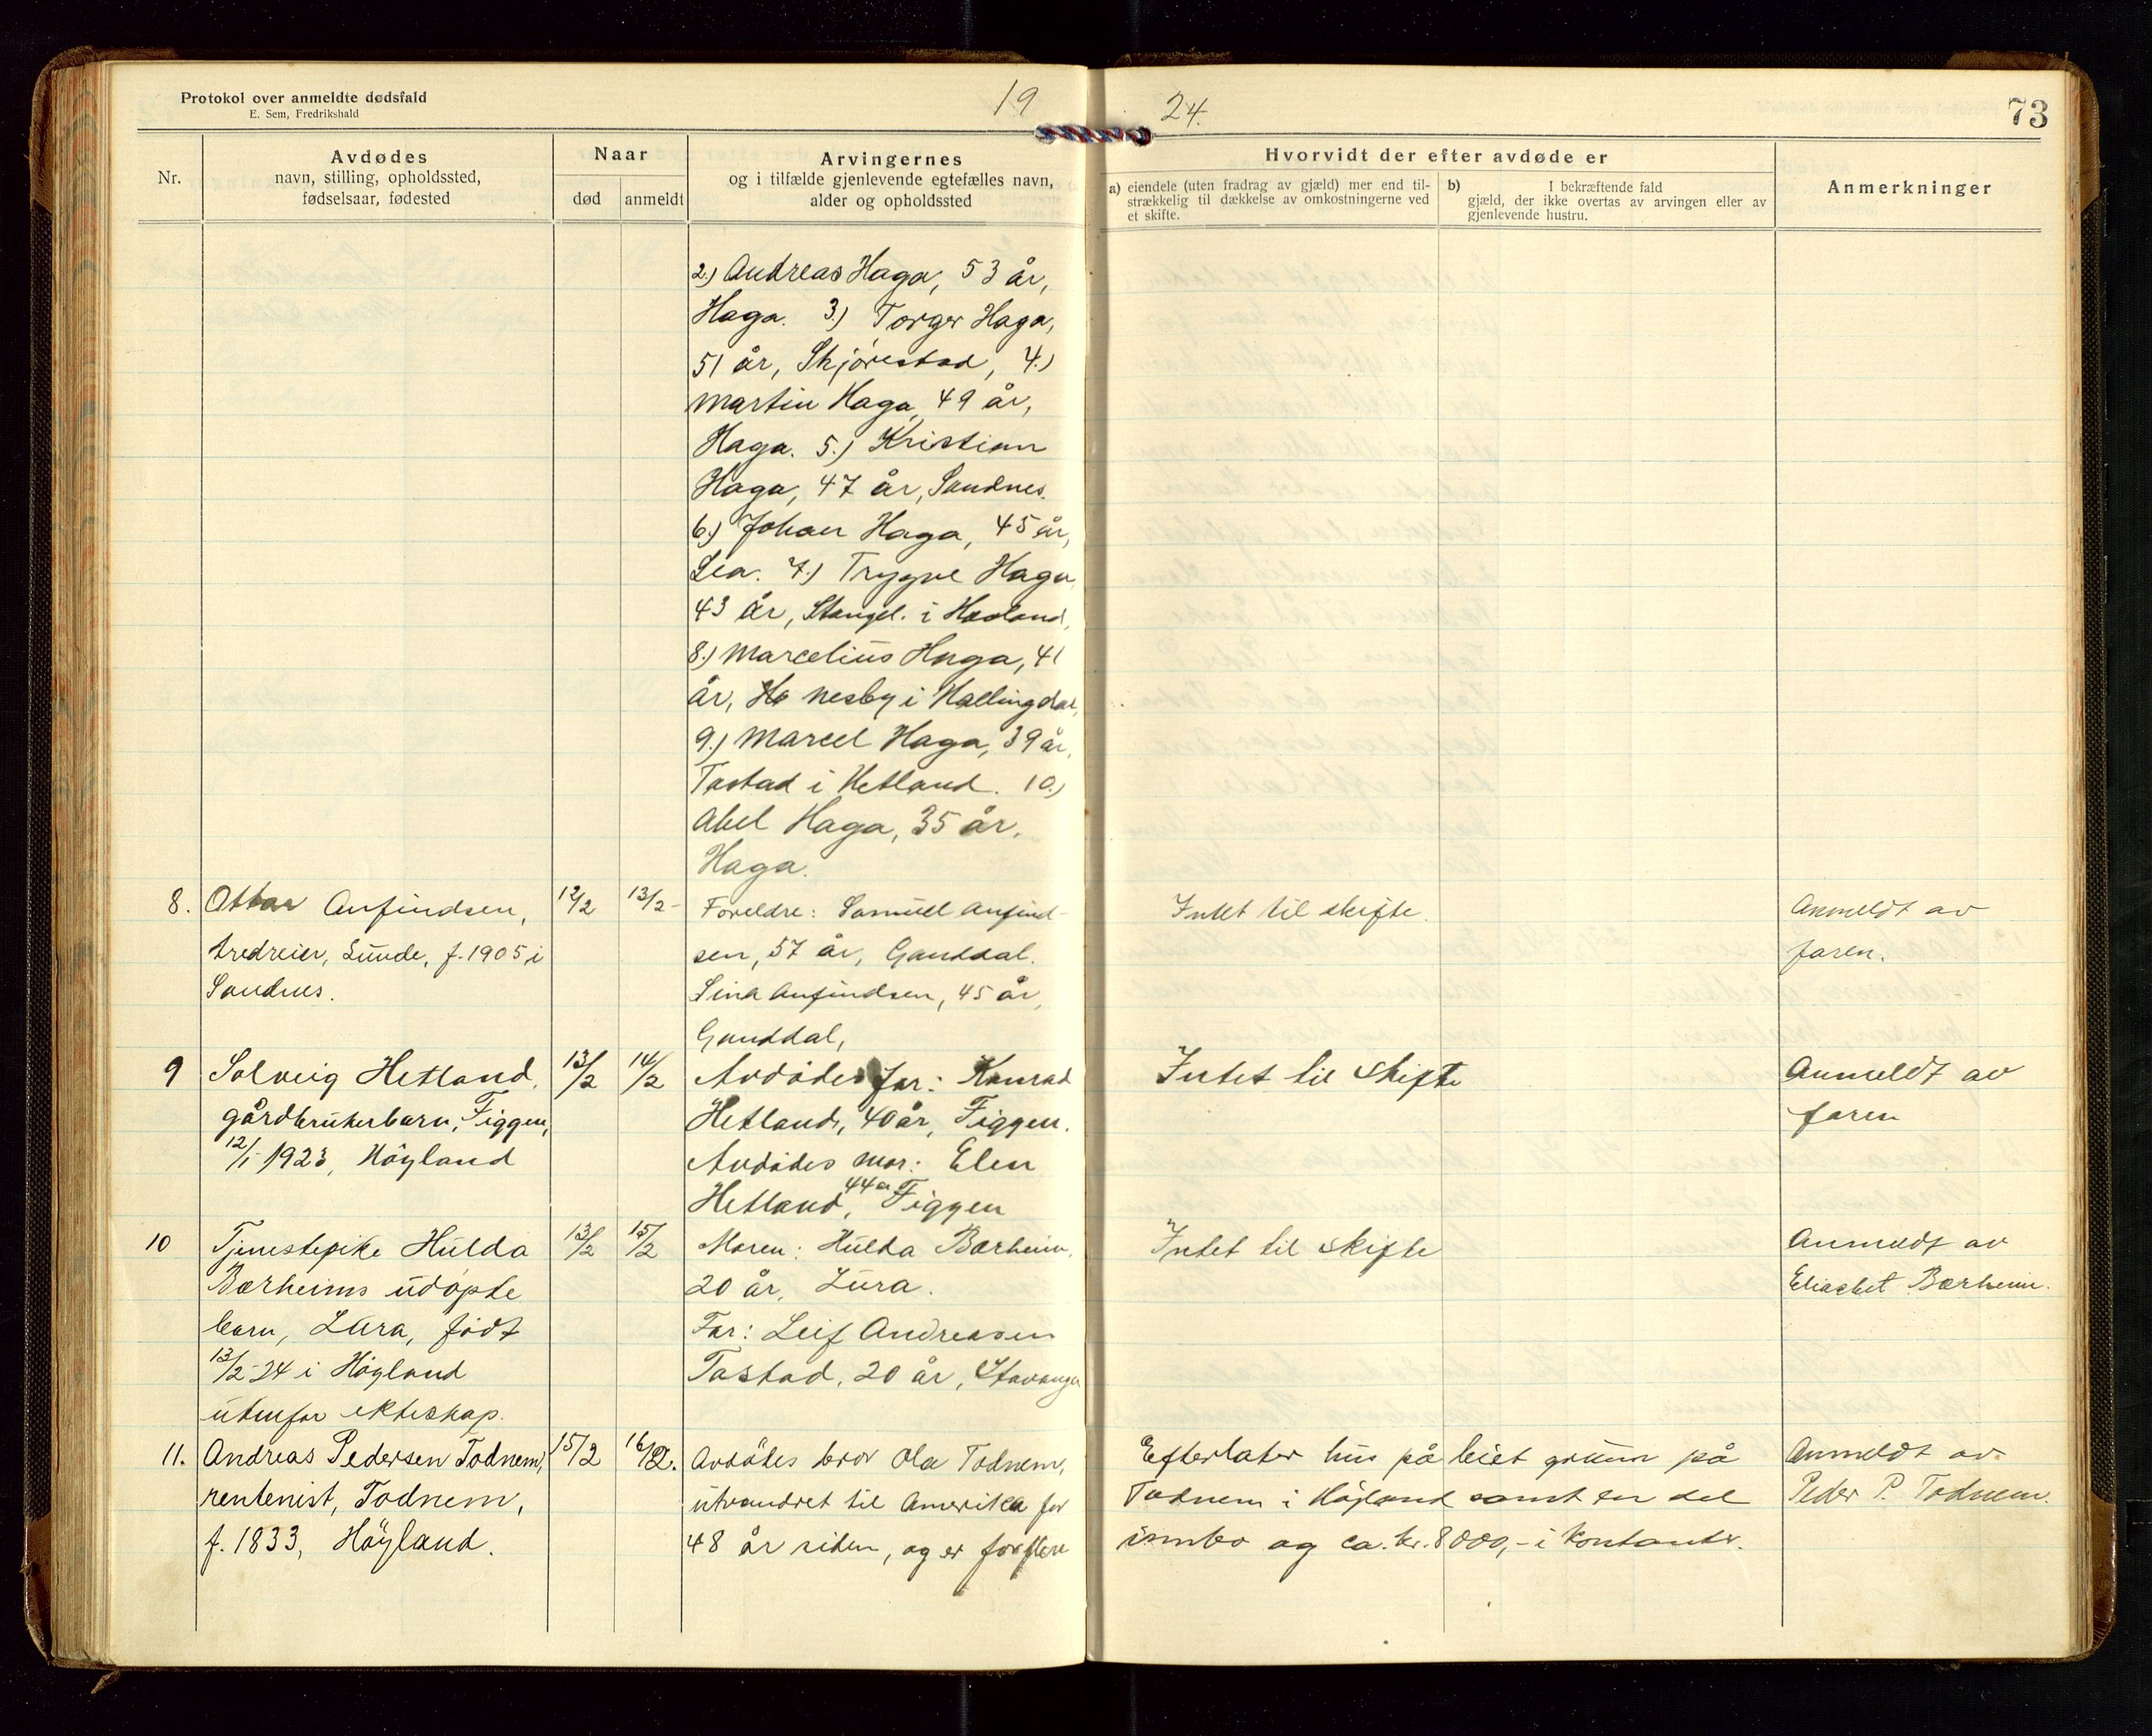 Protokol over anmeldte dødsfald
E. Sem, Fredrikshald
19
24.
73
Nr.
Avdødes
navn, stilling, opholdssted,
fødselsaar, fødested
Naar
død
anmeldt
Arvingernes
og i tilfælde gjenlevende egtefælles navn,
alder og opholdssted
Hvorvidt der efter avdøde er
a) eiendele (uten fradrag av gjæld) mer end til-
strækkelig til dækkelse av omkostningerne ved
et skifte.
b) I bekræftende fald
gjæld, der ikke overtas av arvingen eller av
gjenlevende hustru.
Anmerkninger
2.) Andreas Haga, 53 år,
Haga. 3.) Torger Haga,
51 år, Skjørestad, 4.)
Martin Haga, 49 år,
Haga. 5.) Kristian
Haga, 47 år, Sandnes.
6.) Johan Haga, 45 år,
Lea. 7.) Trygve Haga
43 år, Stangel. i Havland,
8.) Marcelius Haga, 41
år, Ho Nesby i Hallingdal,
9.) Marcel Haga, 39 år,
Tastad i Hetland. 10.)
Abel Haga, 35 år,
Haga.
8.
Ottar Anfindsen,
tredreier, Lunde, f. 1905 i
Sandnes.
12/2
13/2
Foreldre: Samuel Anfind-
sen, 57 år, Ganddal.
Sina Anfindsen, 45 år,
Ganddal,
Intet til skifte.
Anmeldt av
faren.
9
Solveig Hetland,
gårdbrukerbarn, Figgen,
12/1 1923, Höyland
13/2
14/2
Avdödes far: Konrad
Hetland, 40 år, Figgen.
Avdödes mor: Elen
Hetland, 44 a Figgen
Intet til skifte
Anmeldt av
faren
10
Tjenestepike Hulda
Bærheims udöpte
barn, Lura, födt
13/2-24 i Höyland
utenfor ekteskap.
13/2
15/2
Moren: Hulda Bærheim,
20 år, Lura.
Far: Leif Andreasen
Tastad, 20 år, Stavanger
Intet til skifte
Anmeldt av
Elisabet Bærheim.
11.
Andreas Pedersen Todnem,
rentenist, Todnem,
f. 1833, Höyland.
15/2
16/2.
Avdödes bror Ola Todnem,
utvandret til Amerika for
48 år siden, og er for flere
Efterlater hus på leiet grunn på
Todnem i Höyland samt en del
innbo og ca. kr. 8000,- i kontanter.
Anmeldt av
Peder P. Todnem.